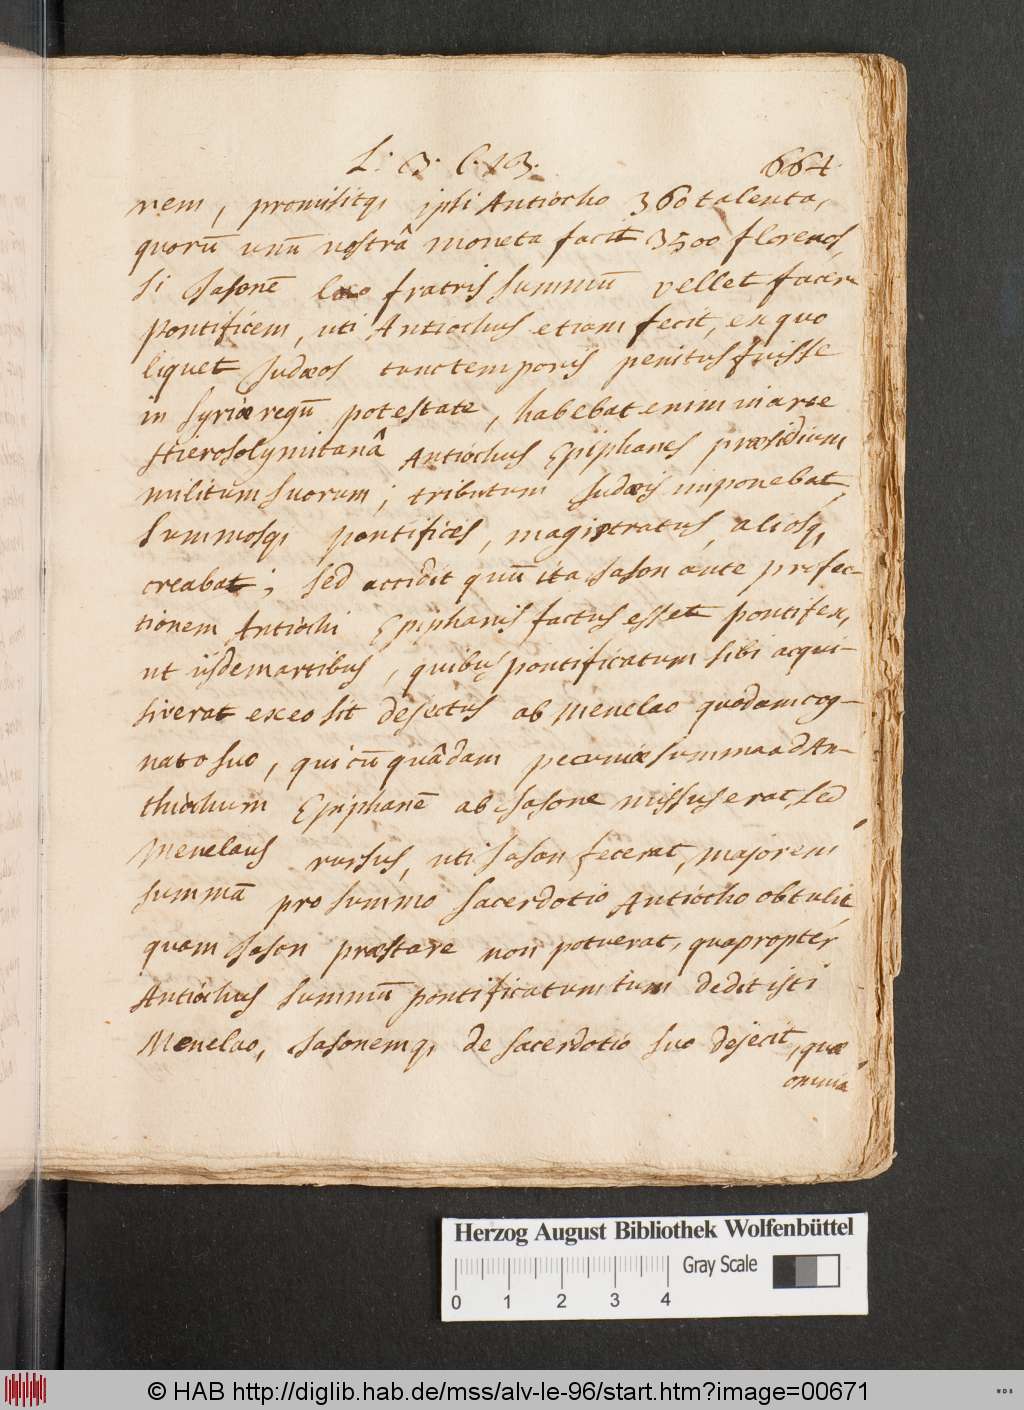 L. 3. C. 13. 664
rem, promisitq, ipsi Antiocho 360 talenta,
quorū unū nostrâ moneta facit 3500 florenos,
si Jasonē loco fratris summū vellet facere
pontificem, uti Antiochus etiam fecit, ex quo
liquet Judæos tunc temporis penitus fuisse
in Syriæ regū potestate, habebat enim in arce
Hierosolymitanâ Antiochus Epiphanes præsidium
militum suorum; tributum Judæis imponebat,
summosq, pontifices, magistratus, aliosq,
creabat; sed accidit quū ita Jason ante profec-
tionem Antiochi Epiphanis factus esset pontifex,
ut iisdem artibus, quibus pontificatum sibi acqui-
siverat ex eo sit dejectus ab Menelao quodam cog-
nato suo, qui cū quâdam pecuniæ summa ad An-
thiochum Epiphanē ab Jasone missus erat, sed
Menelaus rursus, uti Jason fecerat, majorem
summā pro summo sacerdotio Antiocho obtulit,
quam Jason præstare non potuerat, quapropter
Antiochus summū pontificatum tum dedit isti
Menelao, Jasonemq, de sacerdotio suo dejecit, quæ
omnia
Herzog August Bibliothek Wolfenbüttel
Gray Scale
0 1 2 3 4
© HAB http://diglib.hab.de/mss/alv-le-96/start.htm?image=00671